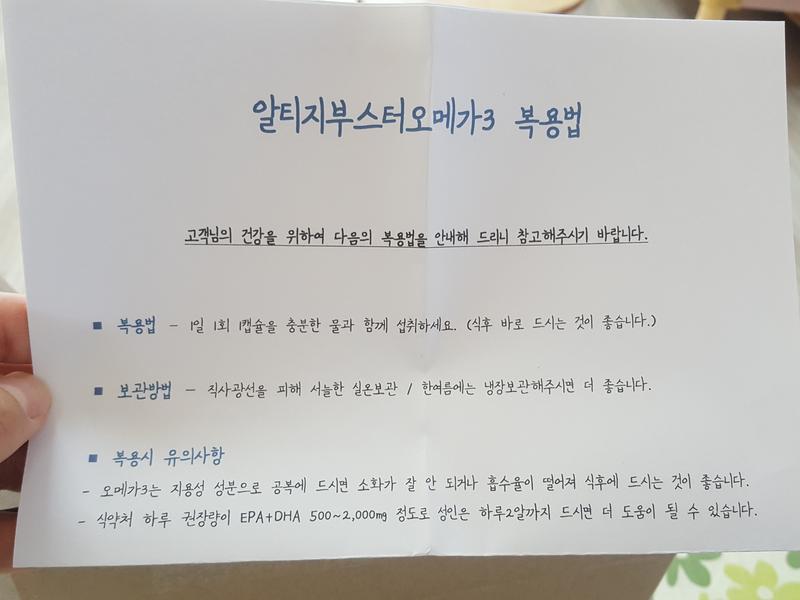 알티지부스터오메가3 복용법
고객님의 건강을 위하여 다음의 복용법을 안내해 드리니 참고해주시기 바랍니다.
■ 복용법 - 1일 1회 1캡슐을 충분한 물과 함께 섭취하세요. (식후 바로 드시는 것이 좋습니다.)
■ 보관방법 - 직사광선을 피해 서늘한 실온보관 / 한여름에는 냉장보관해주시면 더 좋습니다.
■ 복용시 유의사항
- 오메가3는 지용성 성분으로 공복에 드시면 소화가 잘 안 되거나 흡수율이 떨어져 식후에 드시는 것이 좋습니다.
- 식약처 하루 권장량이 EPA+DHA 500~2,000mg 정도로 성인은 하루2알까지 드시면 더 도움이 될 수 있습니다.